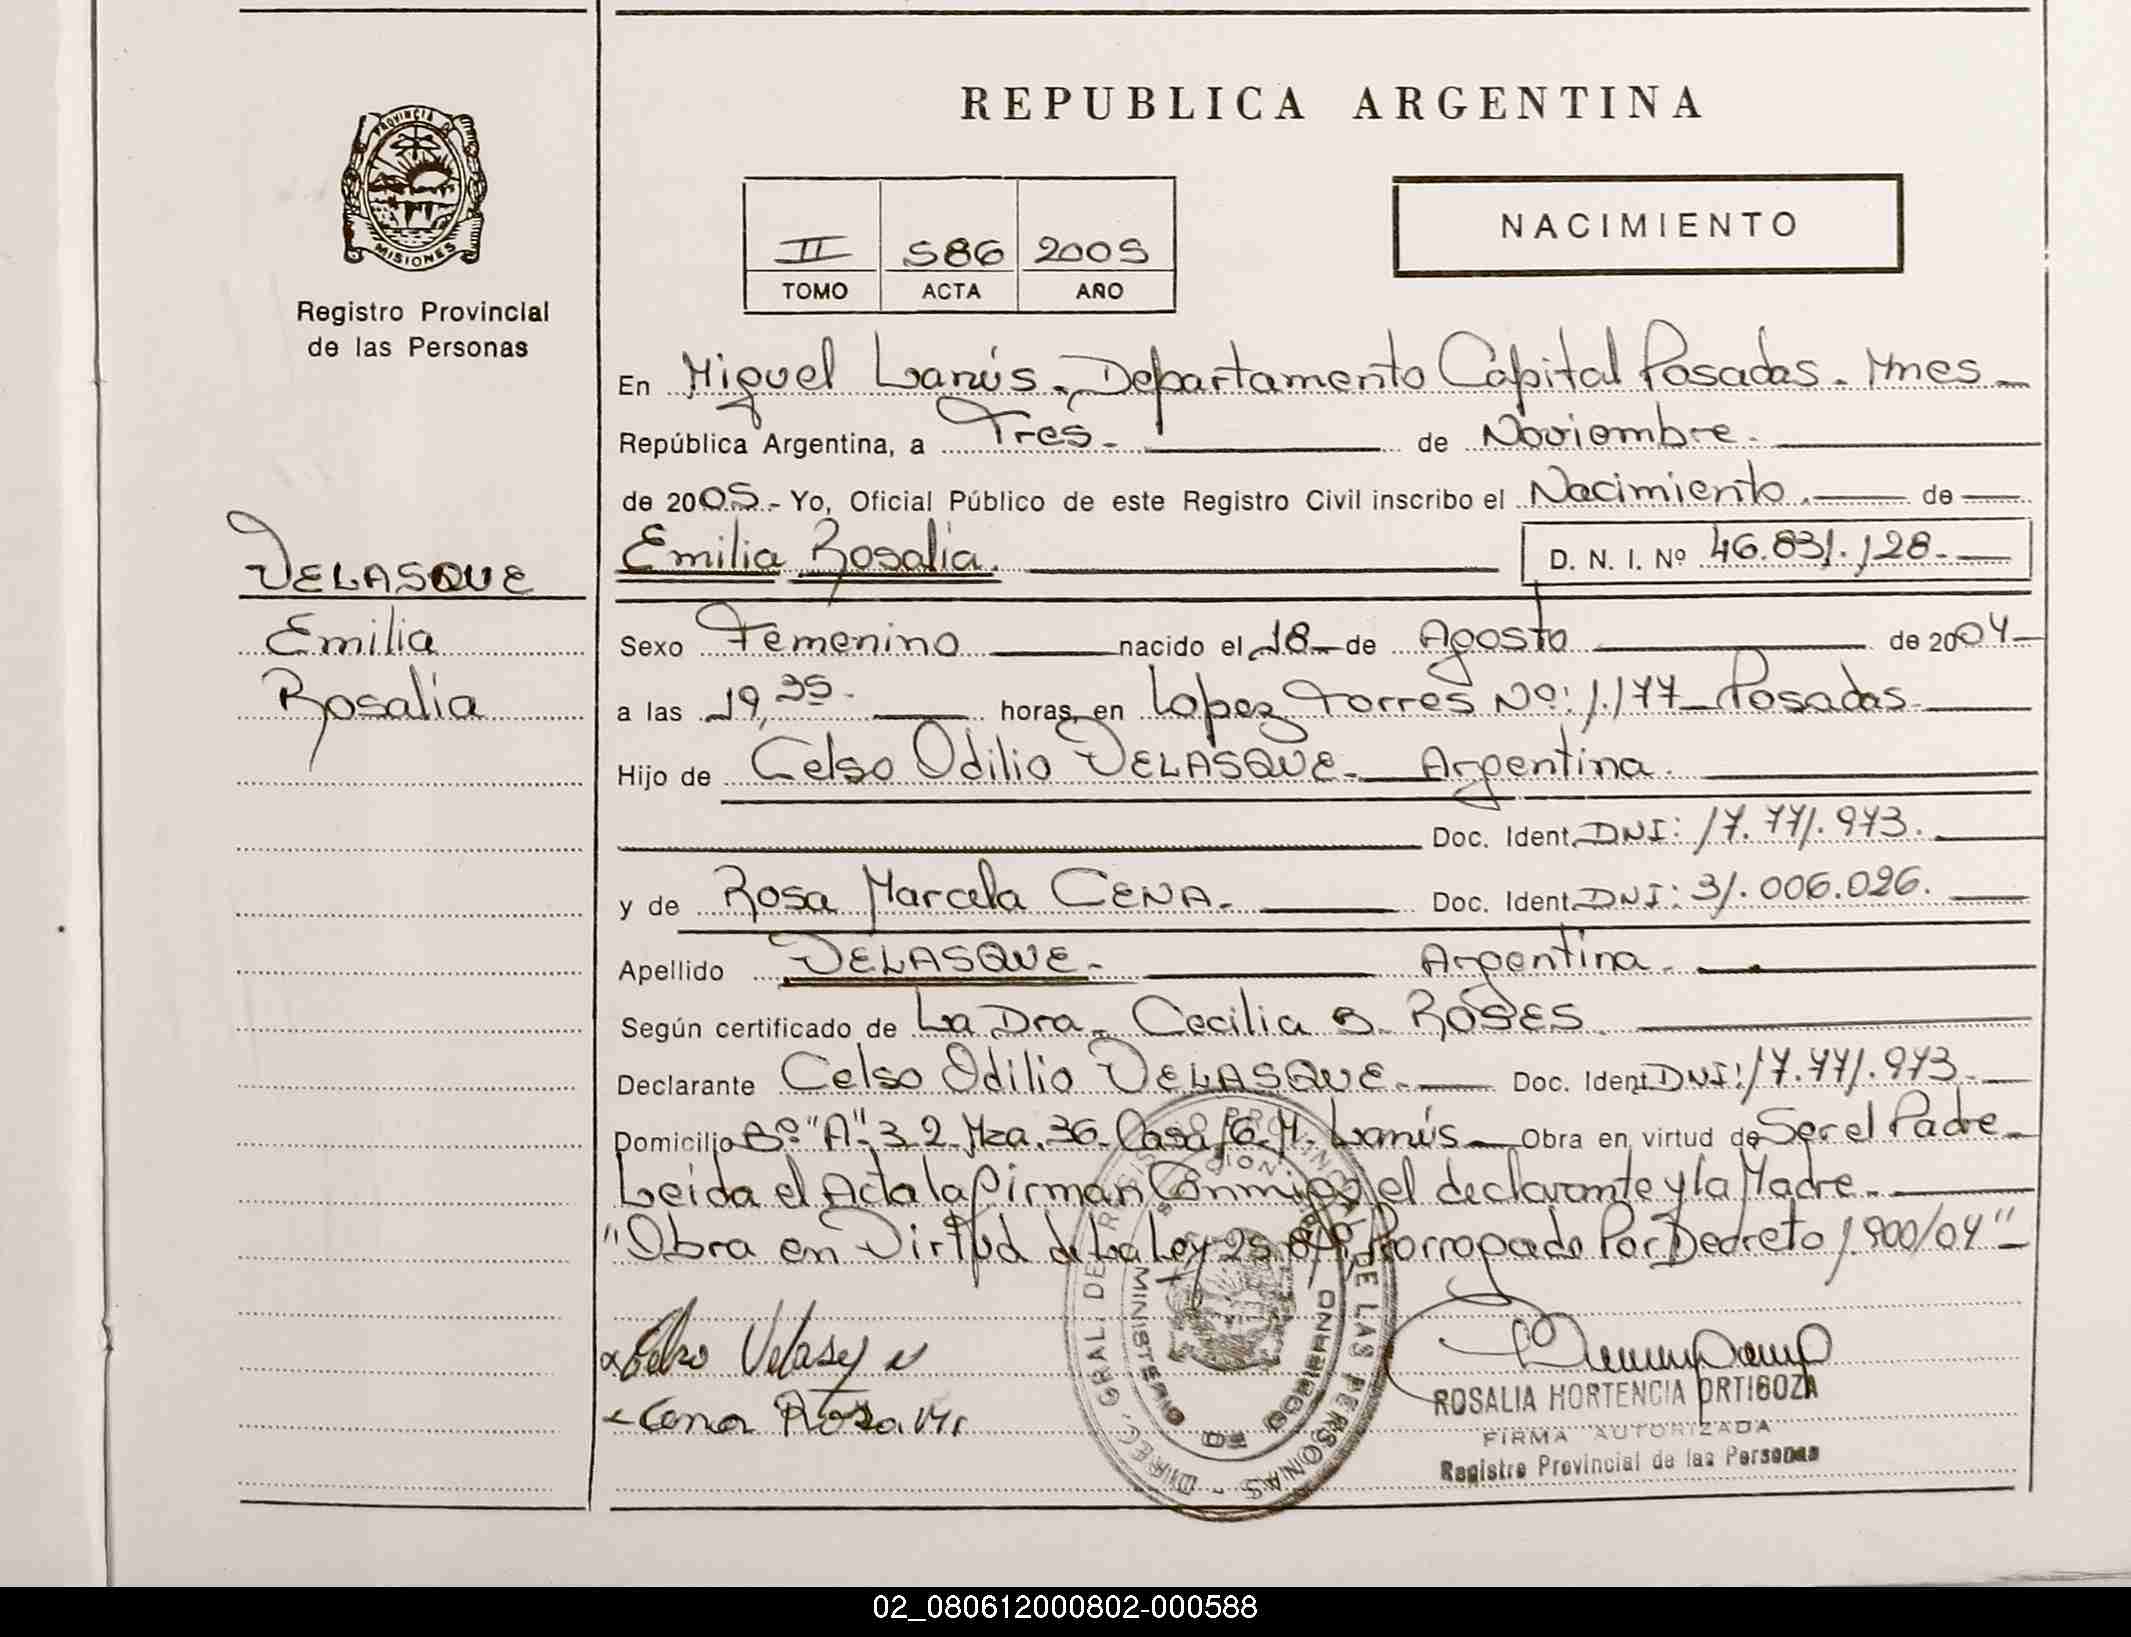 REPUBLICA ARGENTINA
PROVINCIA DE
MISIONES
Registro Provincial
de las Personas
II 586 2005
TOMO ACTA AÑO
NACIMIENTO
En Miguel Lanús. Departamento Capital Posadas. Mnes
República Argentina, a Tres. de Noviembre.
de 2005.- Yo, Oficial Público de este Registro Civil inscribo el Nacimiento. de
VELASQUE
Emilia
Rosalia
Emilia Rosalia. D. N. I. Nº 46.831.128.
Sexo Femenino nacido el 18 de Agosto de 2004
a las 19,35. horas, en Lopez Torres Nº: 1.177 Posadas.
Hijo de Celso Odilio VELASQUE. Argentina.
Doc. Ident. DNI: 17.771.973.
y de Rosa Marcela CENA. Doc. Ident. DNI: 31.006.026.
Apellido VELASQUE. Argentina.
Según certificado de La Dra. Cecilia B. ROSES
Declarante Celso Odilio VELASQUE. Doc. Ident. DNI: 17.771.973.
Domicilio Bº "A" 3.2 Mza. 36. Casa 16. M. Lanús Obra en virtud de Ser el Padre
Leida el Acta la firman Conmigo el declarante y la Madre.
"Obra en Virtud de La Ley Prorrogado Por Decreto 1.900/04"
Celso
Cena Rosa M.
DIREC. GRAL. DE REGISTRO PROVINCIAL DE LAS PERSONAS
MINISTERIO DE GOBIERNO
ROSALIA HORTENCIA ORTIGOZA
FIRMA AUTORIZADA
Registro Provincial de las Personas
02_080612000802-000588